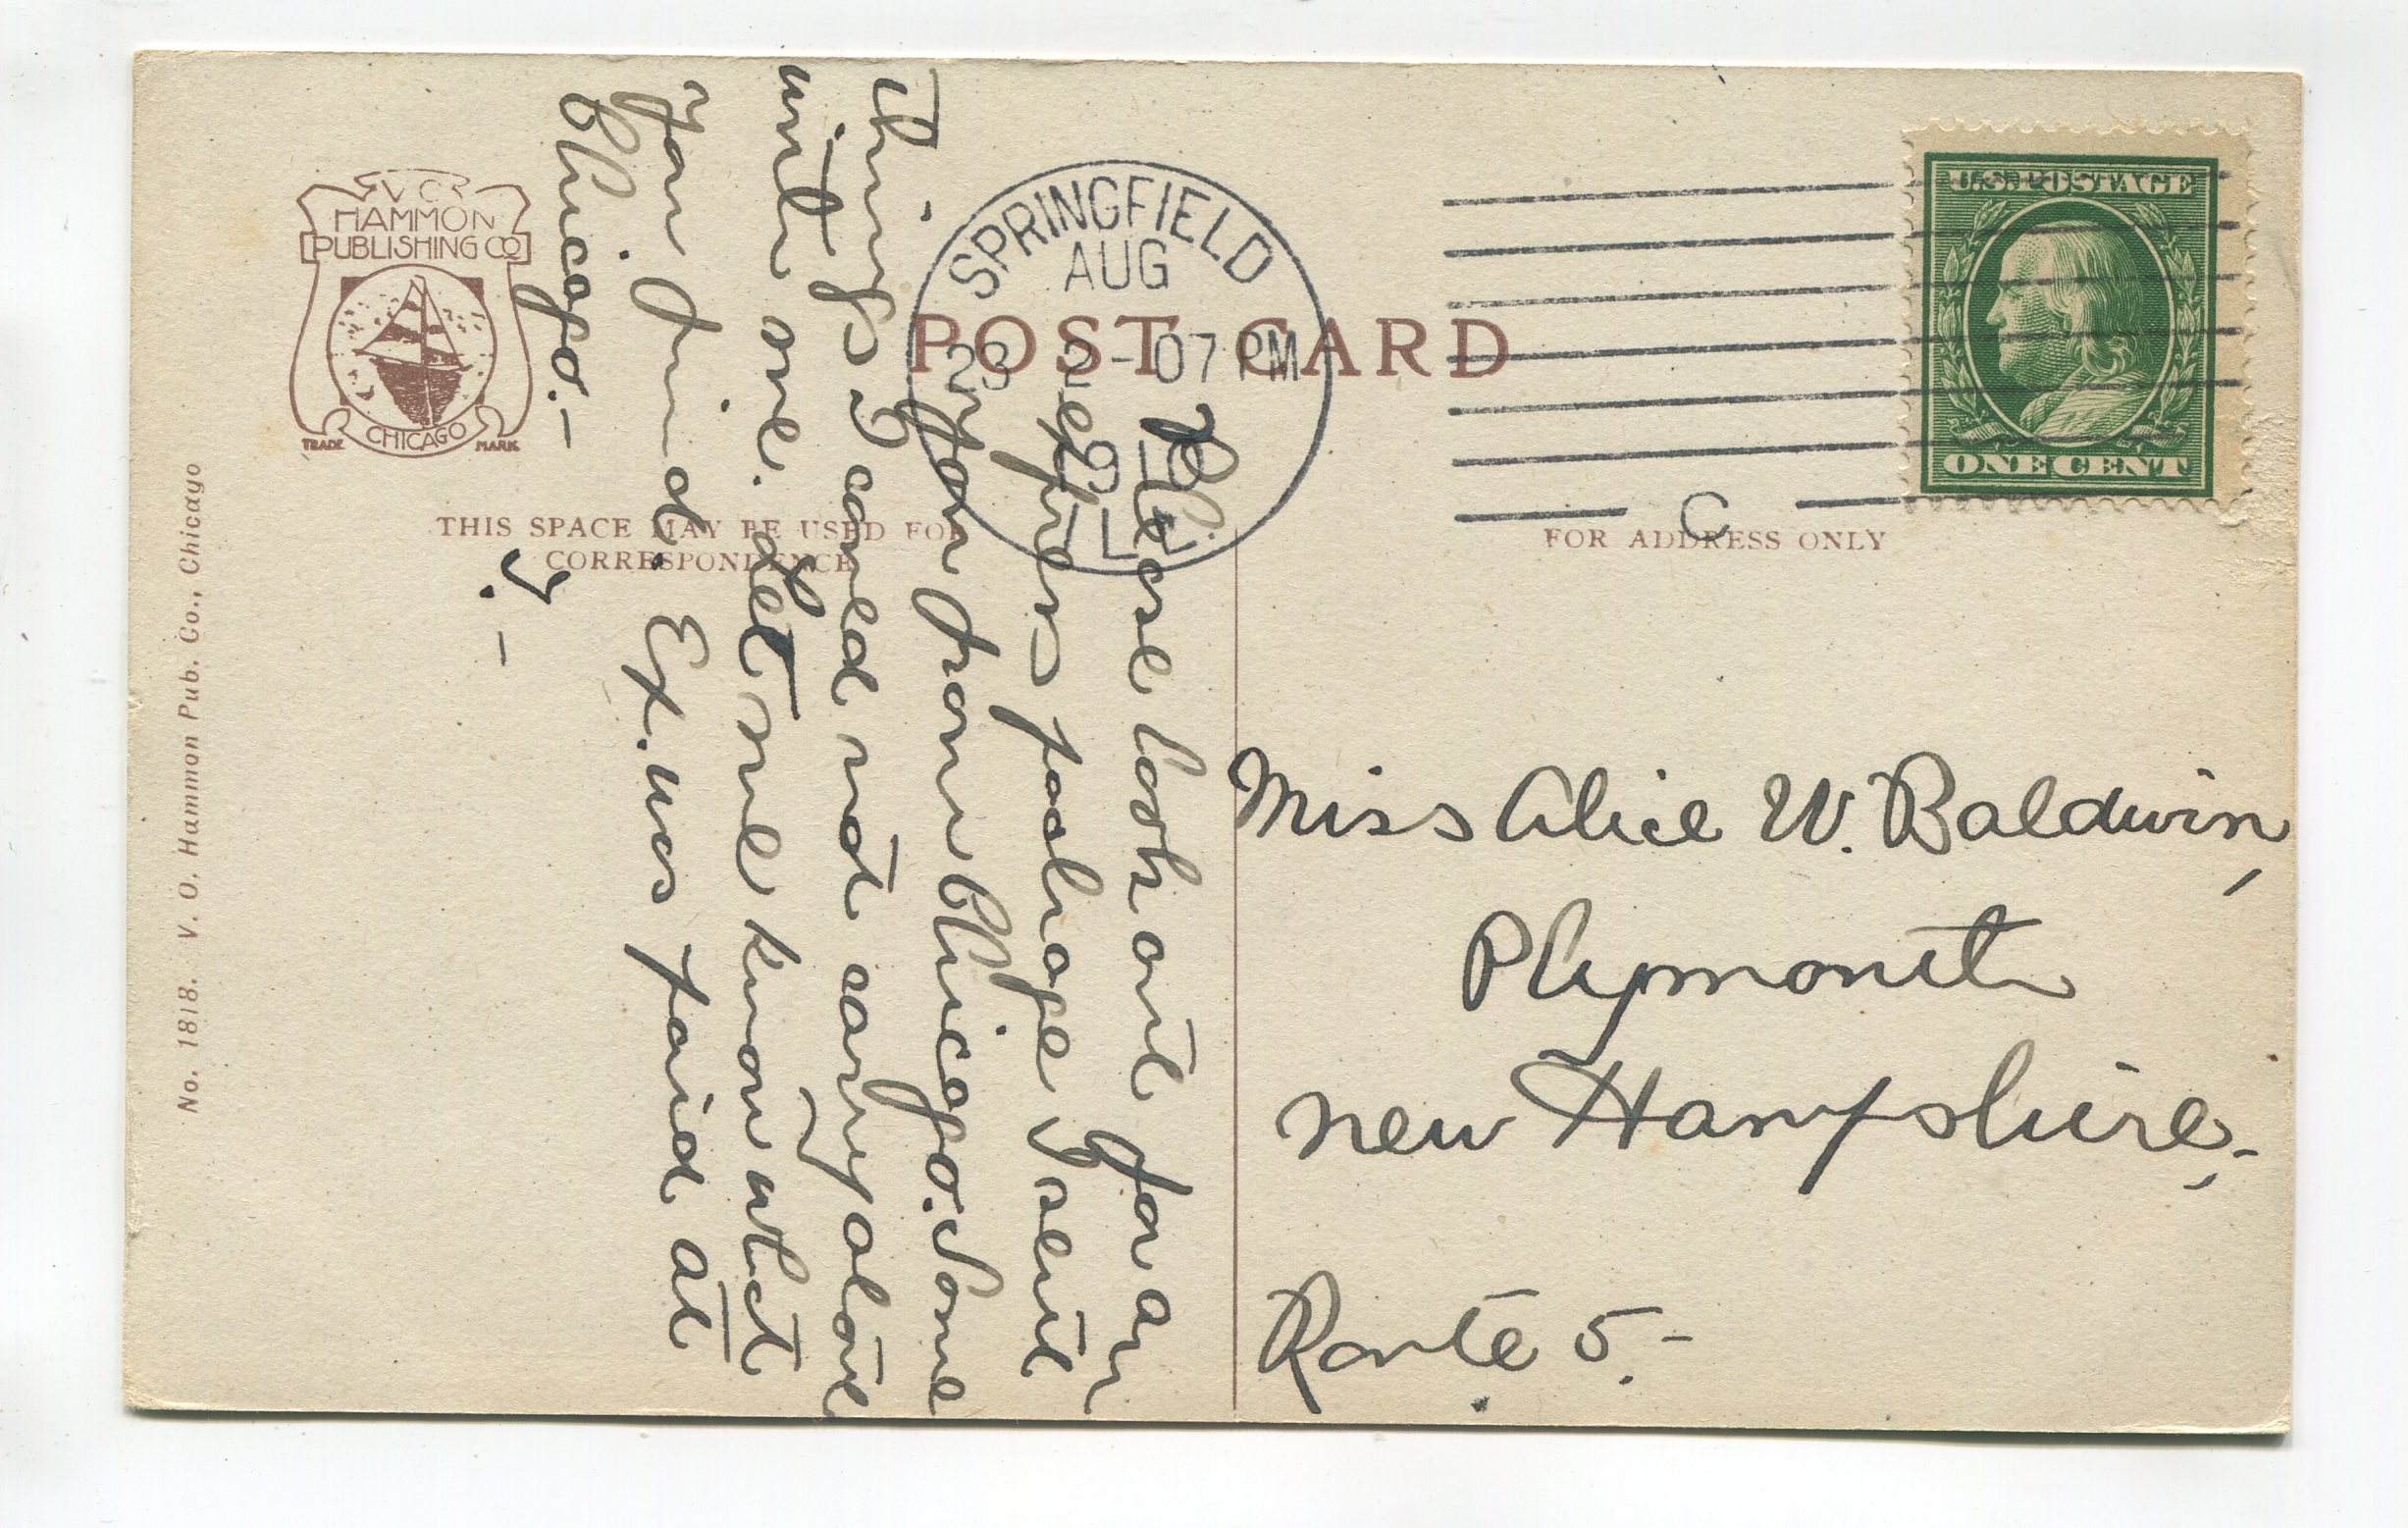 V O
HAMMON
PUBLISHING CO
TRADE CHICAGO MARK
POST CARD
THIS SPACE MAY BE USED FOR
CORRESPONDENCE
FOR ADDRESS ONLY
No. 1818. V. O. Hammon Pub. Co., Chicago
SPRINGFIELD
AUG
23 2-07 PM
ILL
C
U.S. POSTAGE
ONE CENT
Please look out for an
express package I sent
you from Chicago. Some
things I could not carry alone
with me. Let me know what
you find. Ex. was paid at
Chicago.-
J.-
Miss Alice W. Baldwin,
Plymouth
New Hampshire,-
Route 5.-